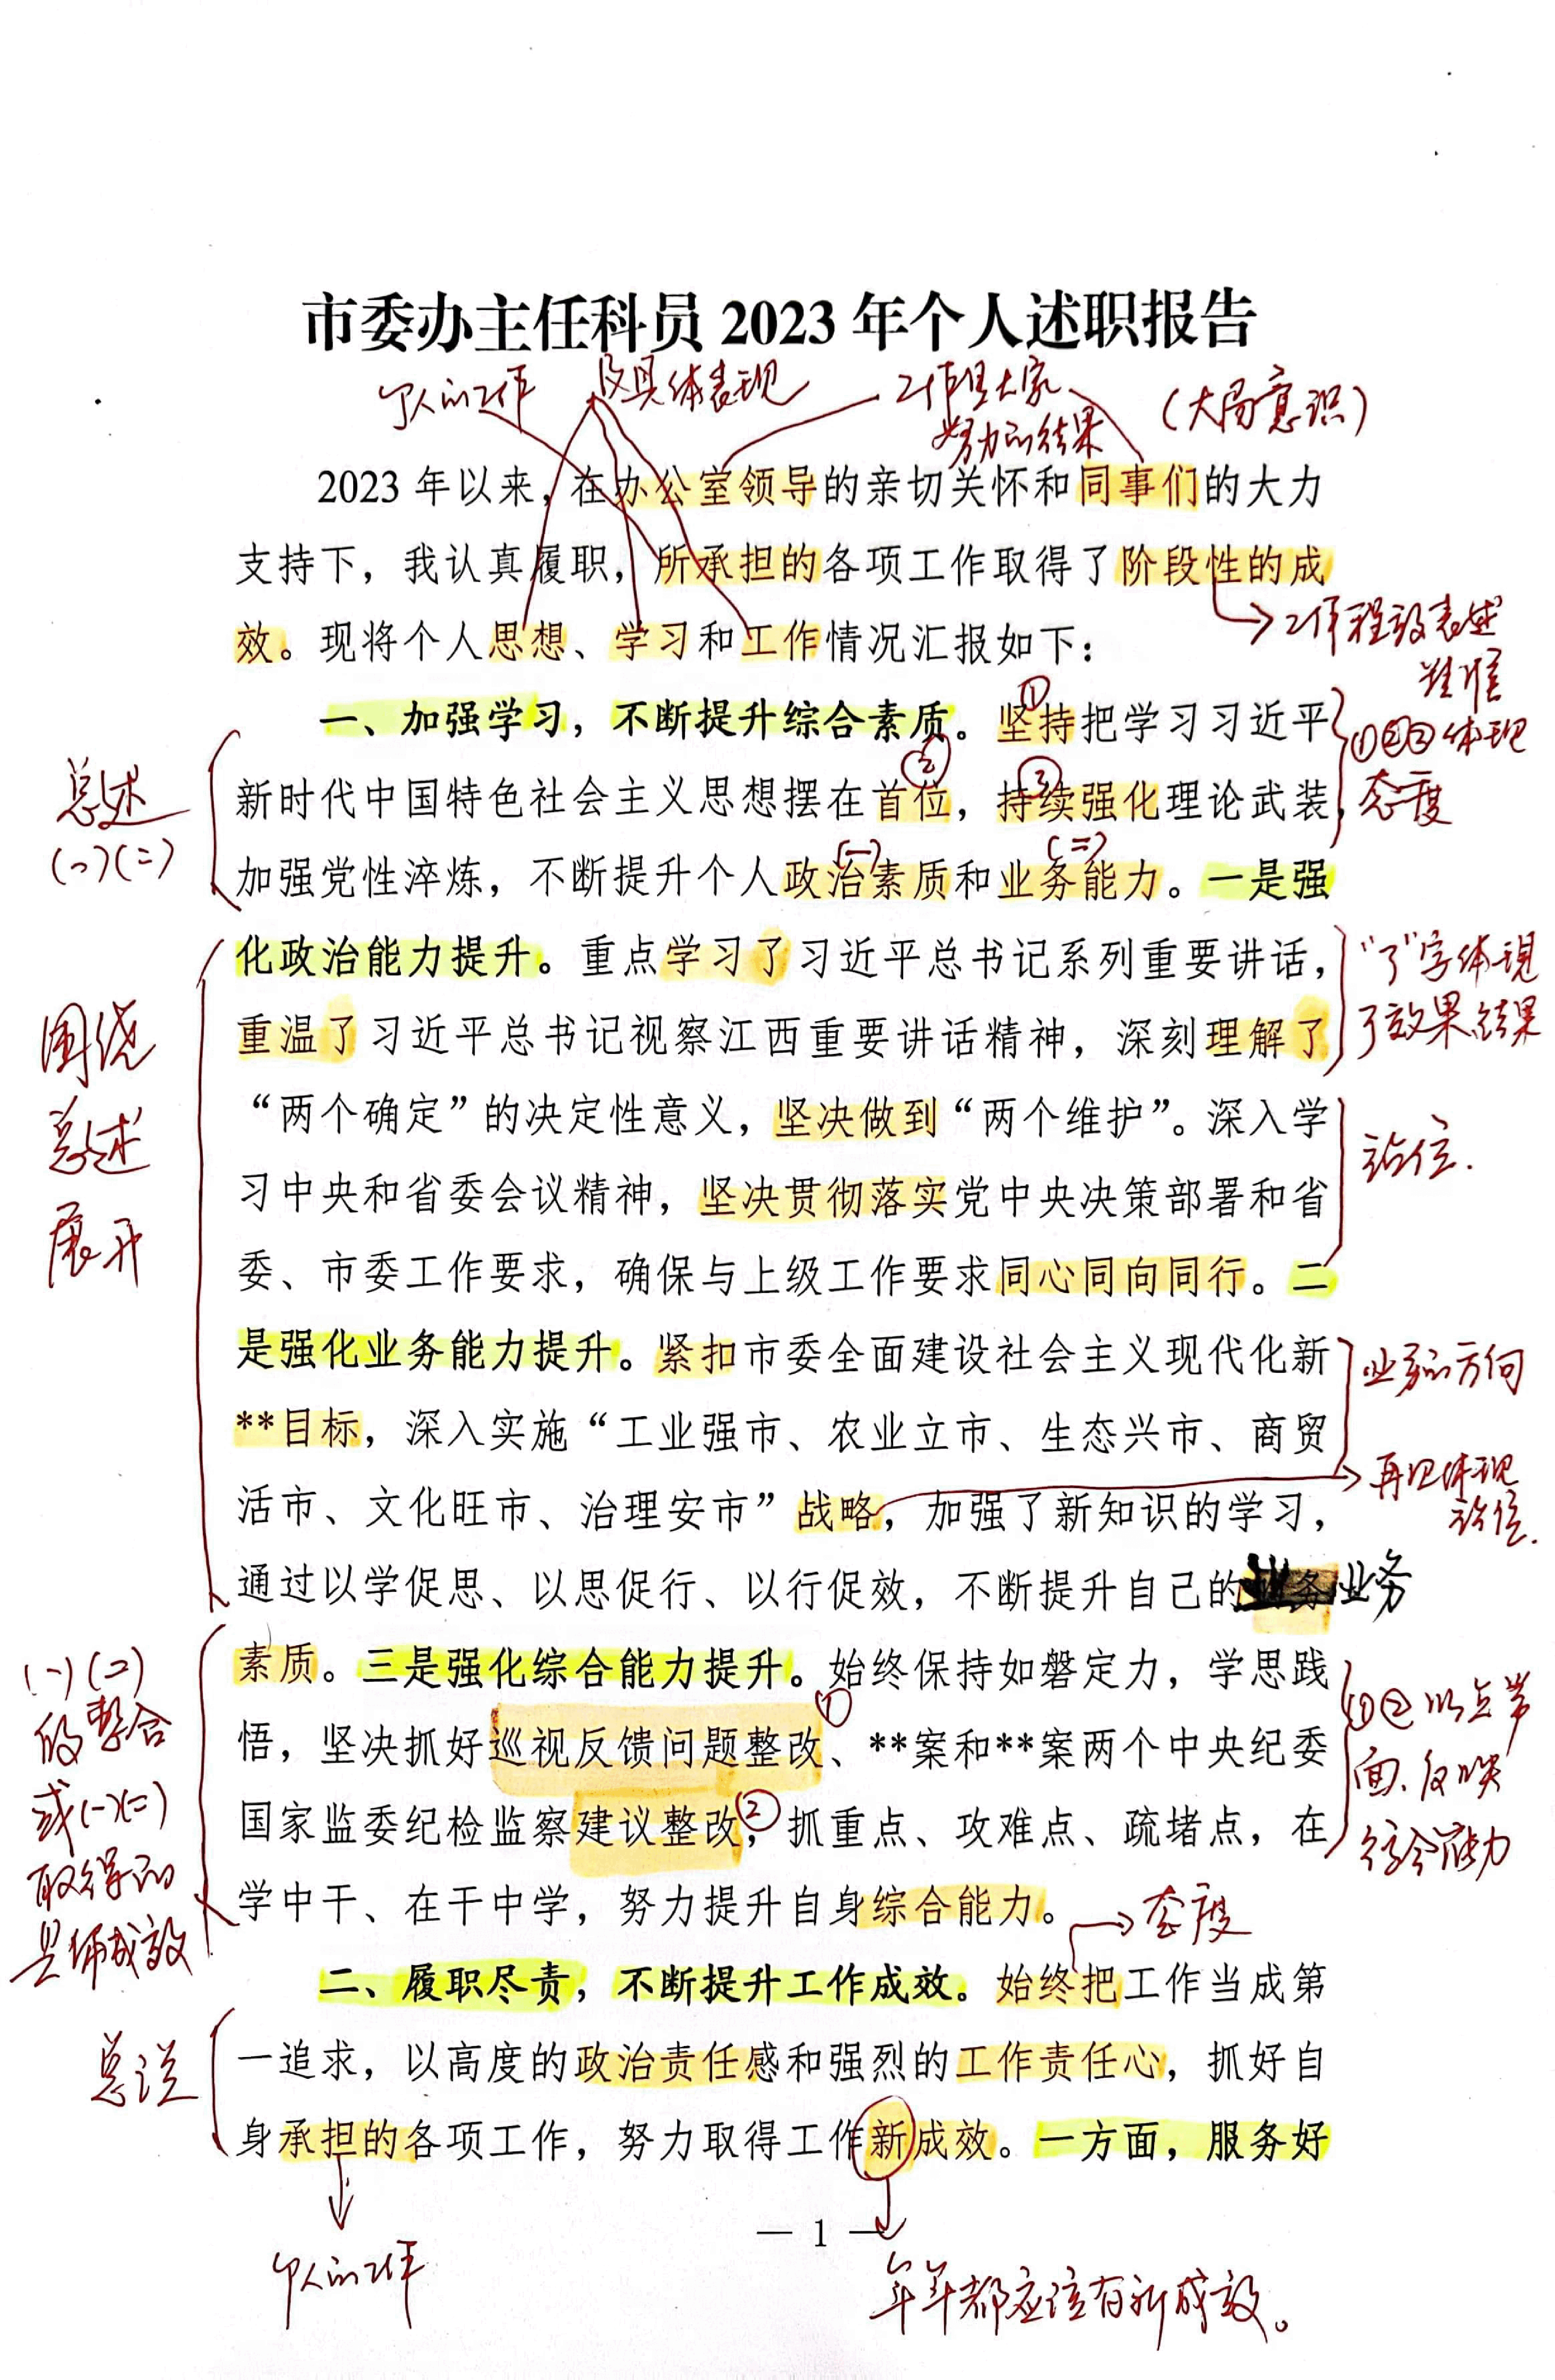 市委办主任科员 2023 年个人述职报告
个人的工作
及具体表现
工作是大家
努力的结果
（大局意识）
2023 年以来，在办公室领导的亲切关怀和同事们的大力
支持下，我认真履职，所承担的各项工作取得了阶段性的成
效。现将个人思想、学习和工作情况汇报如下：
工作程效表述
准
一、加强学习，不断提升综合素质。坚持把学习习近平
①
新时代中国特色社会主义思想摆在首位，持续强化理论武装，
②
③
加强党性淬炼，不断提升个人政治素质和业务能力。一是强
(一)
(二)
总述
(一)(二)
①②③体现
态度
化政治能力提升。重点学习了习近平总书记系列重要讲话，
重温了习近平总书记视察江西重要讲话精神，深刻理解了
“了”字体现
了效果、结果
“两个确定”的决定性意义，坚决做到“两个维护”。深入学
习中央和省委会议精神，坚决贯彻落实党中央决策部署和省
委、市委工作要求，确保与上级工作要求同心同向同行。二
站位.
围绕
总述
展开
是强化业务能力提升。紧扣市委全面建设社会主义现代化新
**目标，深入实施“工业强市、农业立市、生态兴市、商贸
活市、文化旺市、治理安市”战略，加强了新知识的学习，
通过以学促思、以思促行、以行促效，不断提升自己的业务
业务的方向
再次体现
站位.
素质。三是强化综合能力提升。始终保持如磐定力，学思践
悟，坚决抓好巡视反馈问题整改、**案和**案两个中央纪委
①
国家监委纪检监察建议整改，抓重点、攻难点、疏堵点，在
②
学中干、在干中学，努力提升自身综合能力。
(一)(二)
的整合
或(一)(二)
取得的
具体成效
①②以点带
面.反映
综合能力
态度
二、履职尽责，不断提升工作成效。始终把工作当成第
一追求，以高度的政治责任感和强烈的工作责任心，抓好自
身承担的各项工作，努力取得工作新成效。一方面，服务好
总说
— 1 —
个人的工作
年年都应该有新成效。